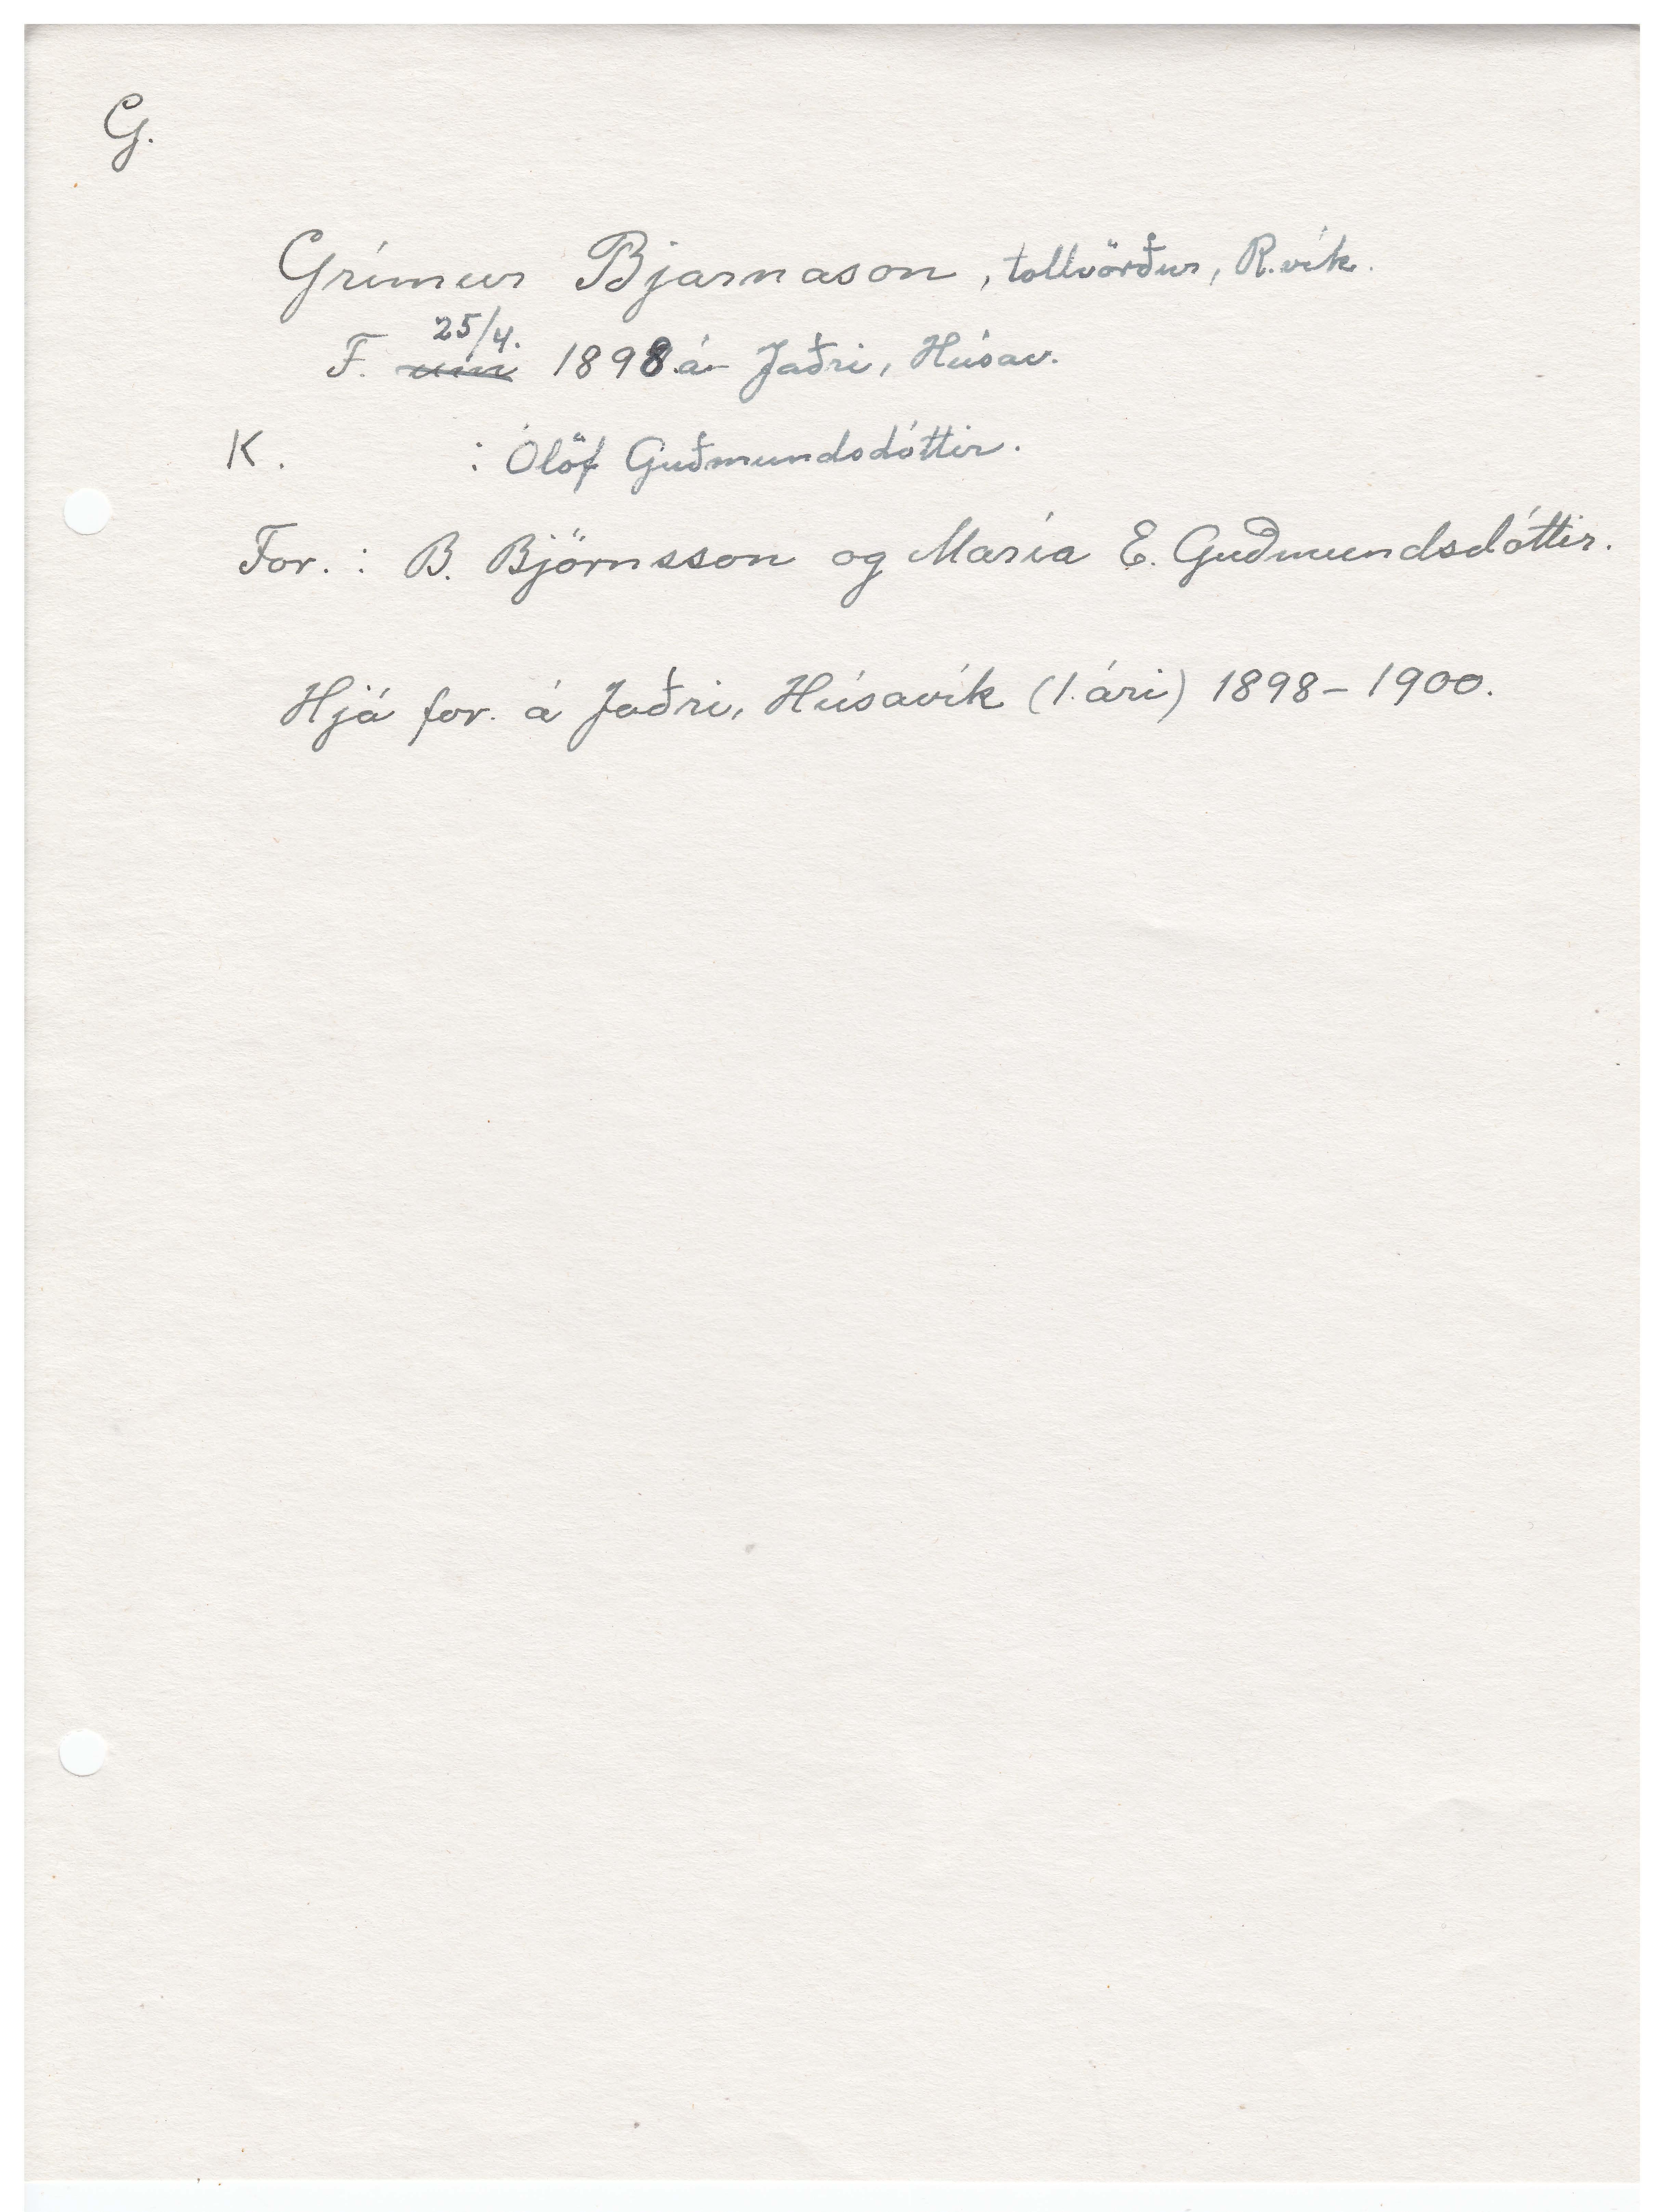 G.
Grímur Bjarnason, tollvörður, R.vík.
25/4.
F. um 1898 á Jaðri, Húsav.
K. : Ólöf Guðmundsdóttir.
For. : B. Björnsson og María E. Guðmundsdóttir.
Hjá for. á Jaðri, Húsavík (1. ári) 1898 – 1900.